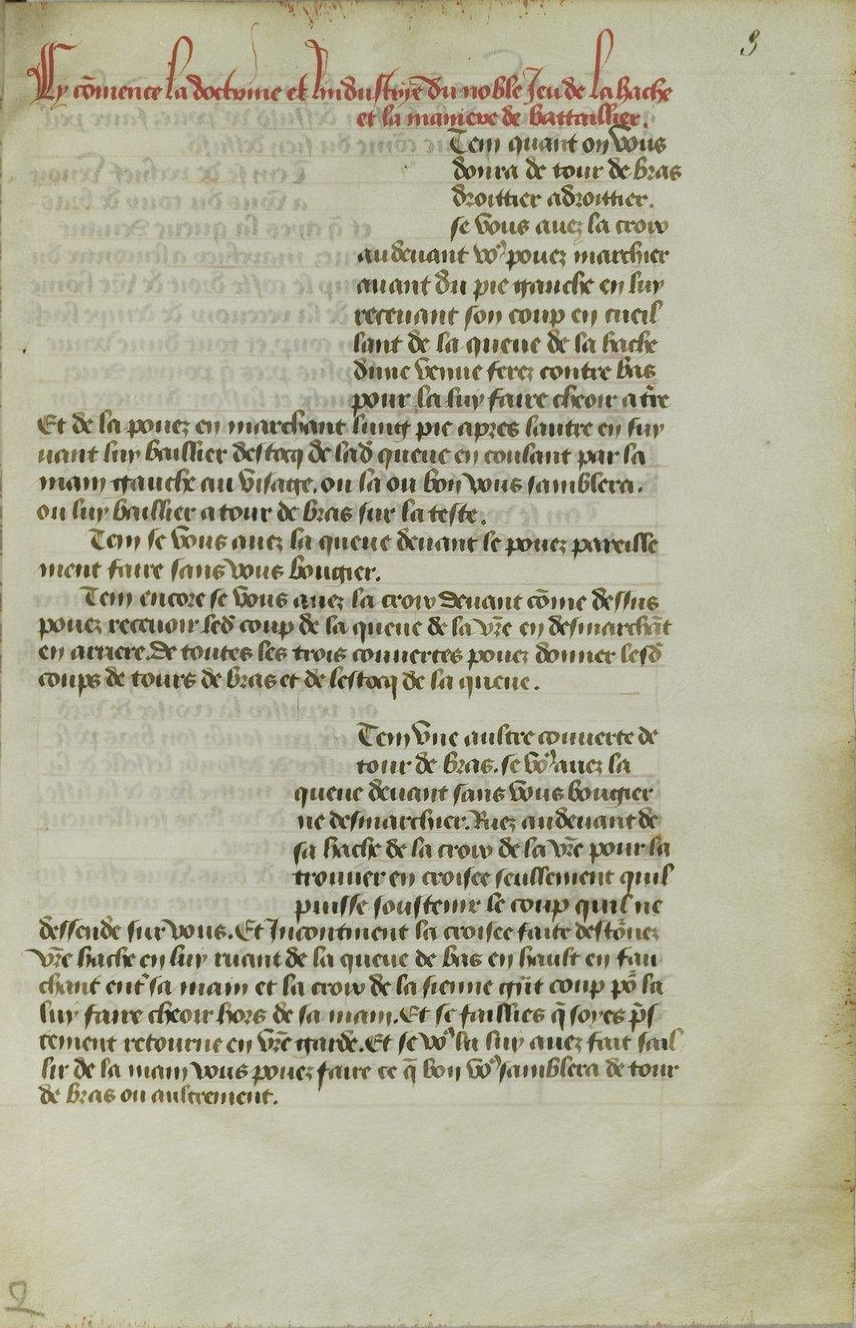 3
Cy cōmence la doctrine et lindustrye du noble Jeu de la hache
et la maniere de battaillier.
Tem quant on vous
donra de tour de bras
droittier a droittier.
se vous auez la croix
au deuant voꝰ pouez marchier
auant du pie gauche en luy
receuant son coup en cueil
lant de la queue de la hache
dune venue ferez contre bas
pour la luy faire cheoir a t̄re
Et de la pouez en marchant lung pie apres lautre en suy
uant luy baillier destocq de lad̄ queue en coulant par la
main gauche au visage. ou la ou bon vous samblera.
ou luy baillier a tour de bras sur la teste.
Tem se vous auez la queue deuant le pouez pareille
ment faire sans vous bougier.
Tem encore se vous auez la croix deuant cōme dessus
pouez receuoir led̄ coup de la queue de la vr̄e en desmarchāt
en arriere. De toutes les trois couuertes pouez donner lesd̄
coups de tours de bras et de lestocq de la queue.
Tem vne aultre couuerte de
tour de bras. se voꝰ auez la
queue deuant sans vous bougier
ne desmarchier. Ruez au deuant de
sa hache de la croix de la vr̄e pour la
trouuer en croisee seullement quil
puisse soustenir le coup quil ne
dessende sur vous. Et Incontinent la croisee faite destōnez
vr̄e hache en luy ruant de la queue de bas en hault en fau
chant ent᷑ sa main et la croix de la sienne gn̄t coup po᷑ la
luy faire cheoir hors de sa main. Et se faillies q̄ soyes p̄s
tement retourne en vr̄e garde. Et se voꝰ la luy auez fait sail
lir de la main vous pouez faire ce q̄ bon voꝰ samblera de tour
de bras ou aultrement.
2